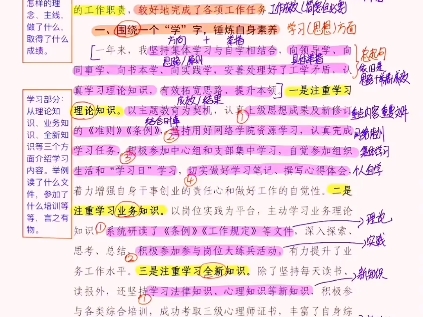 怎样的理
念、主线,
做了什么,
取得了什么
成绩。
学习部分:
从理论知
识、业务知
识、全新知
识等三个方
面介绍学习
内容。举例
读了什么文
件,参加了
什么培训等
等,言之有
物。
的工作职责,较好地完成了各项工作任务
一、围绕一个“学”字,锤炼自身素养 学习(思想)方面
方向 + 举措
一年来,我坚持集体学习与自学相结合,向领导学、向
同事学,向书本学、向实践学,妥善处理好了工学矛盾,认
真学习理论知识,有效拓宽思路,提升本领。一是注重学习
理论知识。以主题教育为契机,认真上级思想成果及新修订
的《准则》《条例》,坚持用好网络学院资源学习,认真完成
学习任务。积极参加中心组和支部集中学习,自觉参加组织
生活和“学习日”学习,切实做好学习笔记、撰写心得体会,
着力增强自身干事创业的责任心和做好工作的自觉性。二是
注重学习业务知识。以岗位实践为平台,主动学习业务理论
知识,系统研读了《条例》《工作规定》等文件,深入探索、
思考、总结。积极参加参与岗位大练兵活动,有力提升了业
务工作水平。三是注重学习全新知识。除了坚持每天读书、
读报外,还坚持学习法律知识、心理知识等新知识。积极参
与各类综合培训,成功考取三级心理师证书,丰富了自身综
理论
实践
新知识